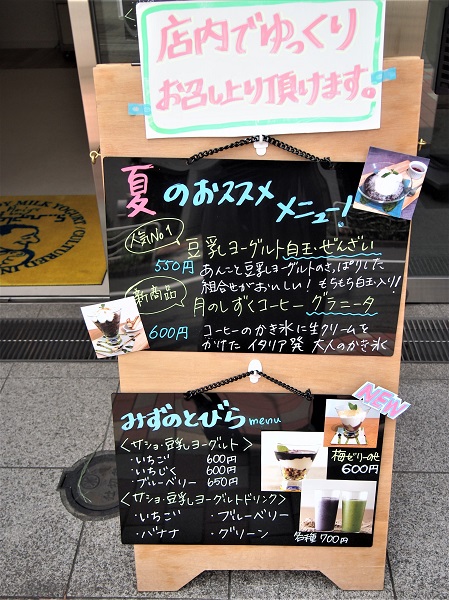 店内でゆっくり
お召し上り頂けます。
夏のおススメ
メニュー!
人気No1
豆乳ヨーグルト白玉・ぜんざい
550円
あんこと豆乳ヨーグルトのさっぱりした
組合せがおいしい！もちもち白玉入り！
新商品
月のしずくコーヒーグラニータ
600円
コーヒーのかき氷に生クリームを
かけたイタリア発 大人のかき氷
みずのとびら menu
NEW
<サショ・豆乳ヨーグルト>
・いちご 600円
・いちじく 600円
・ブルーベリー 650円
梅ゼリーのせ
600円
<サショ・豆乳ヨーグルトドリンク>
・いちご ・ブルーベリー
・バナナ ・グリーン
各種 700円